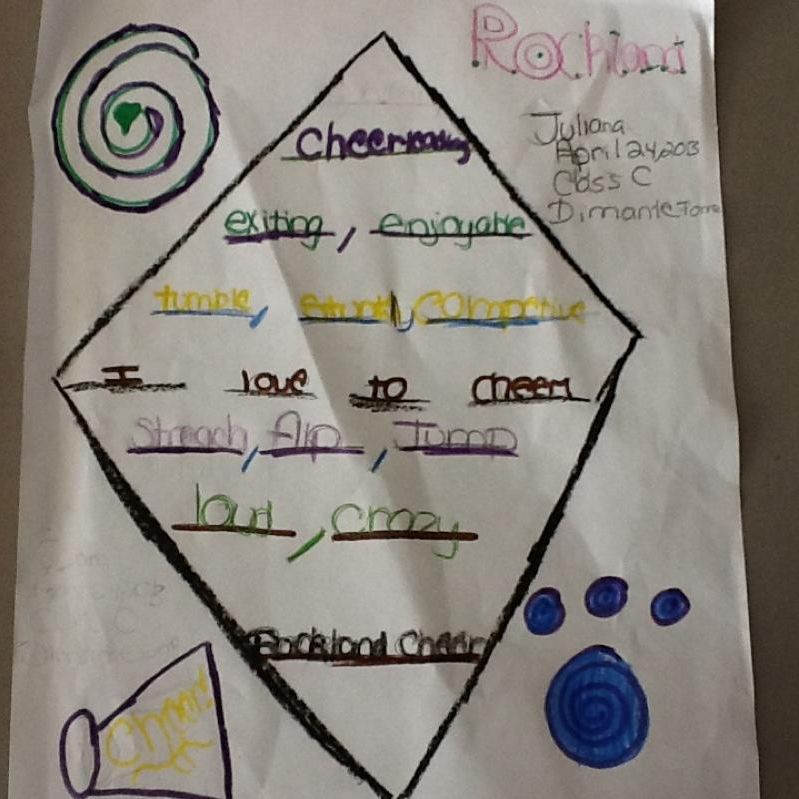 Rockland
Juliana
April 24, 2013
Class C
Cheerleading
exiting, enjoyable
tumble, stunt,
I love to cheer
Streach, flip, Jump
loud, crazy
Rockland Cheer
Cheer!